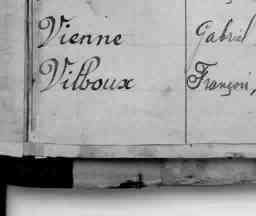 Vienne Gabriel
Vilboux François,